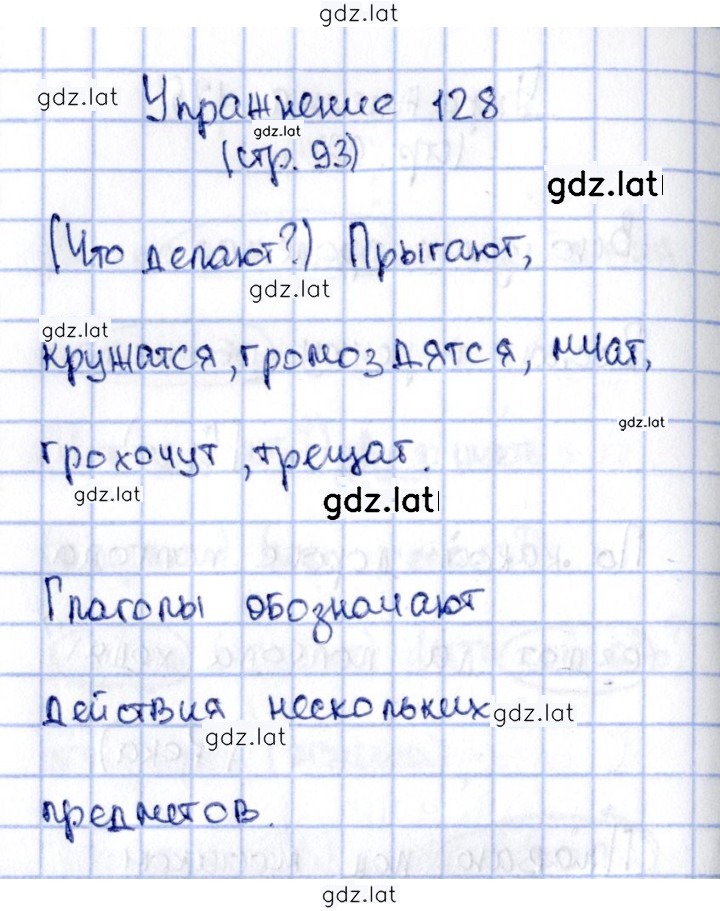 gdz.lat
gdz.lat
Упражнение 128
gdz.lat
(стр. 93)
gdz.lat
(Что делают?) Прыгают,
gdz.lat
gdz.lat
кружатся, громоздятся, мчат,
gdz.lat
грохочут, трещат.
gdz.lat
gdz.lat
Глаголы обозначают
действия нескольких
gdz.lat
gdz.lat
предметов.
gdz.lat